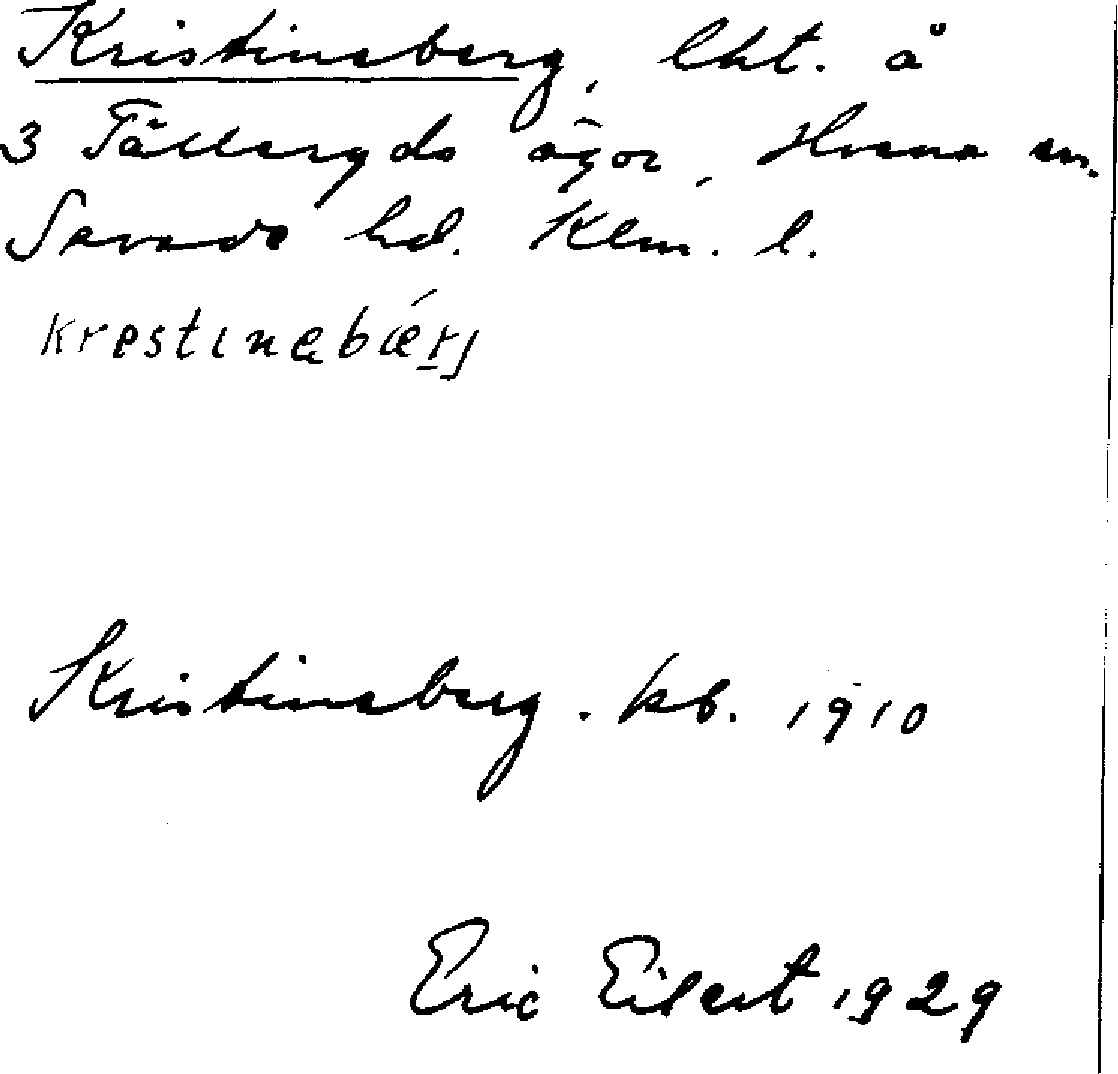 Kristineberg, lht. å
3 Fälleryds ägor, Hvena sn.
Sevede hd. Klm. l.
krestinabærj
Kristineberg. kb. 1910
Eric Eilert 1929